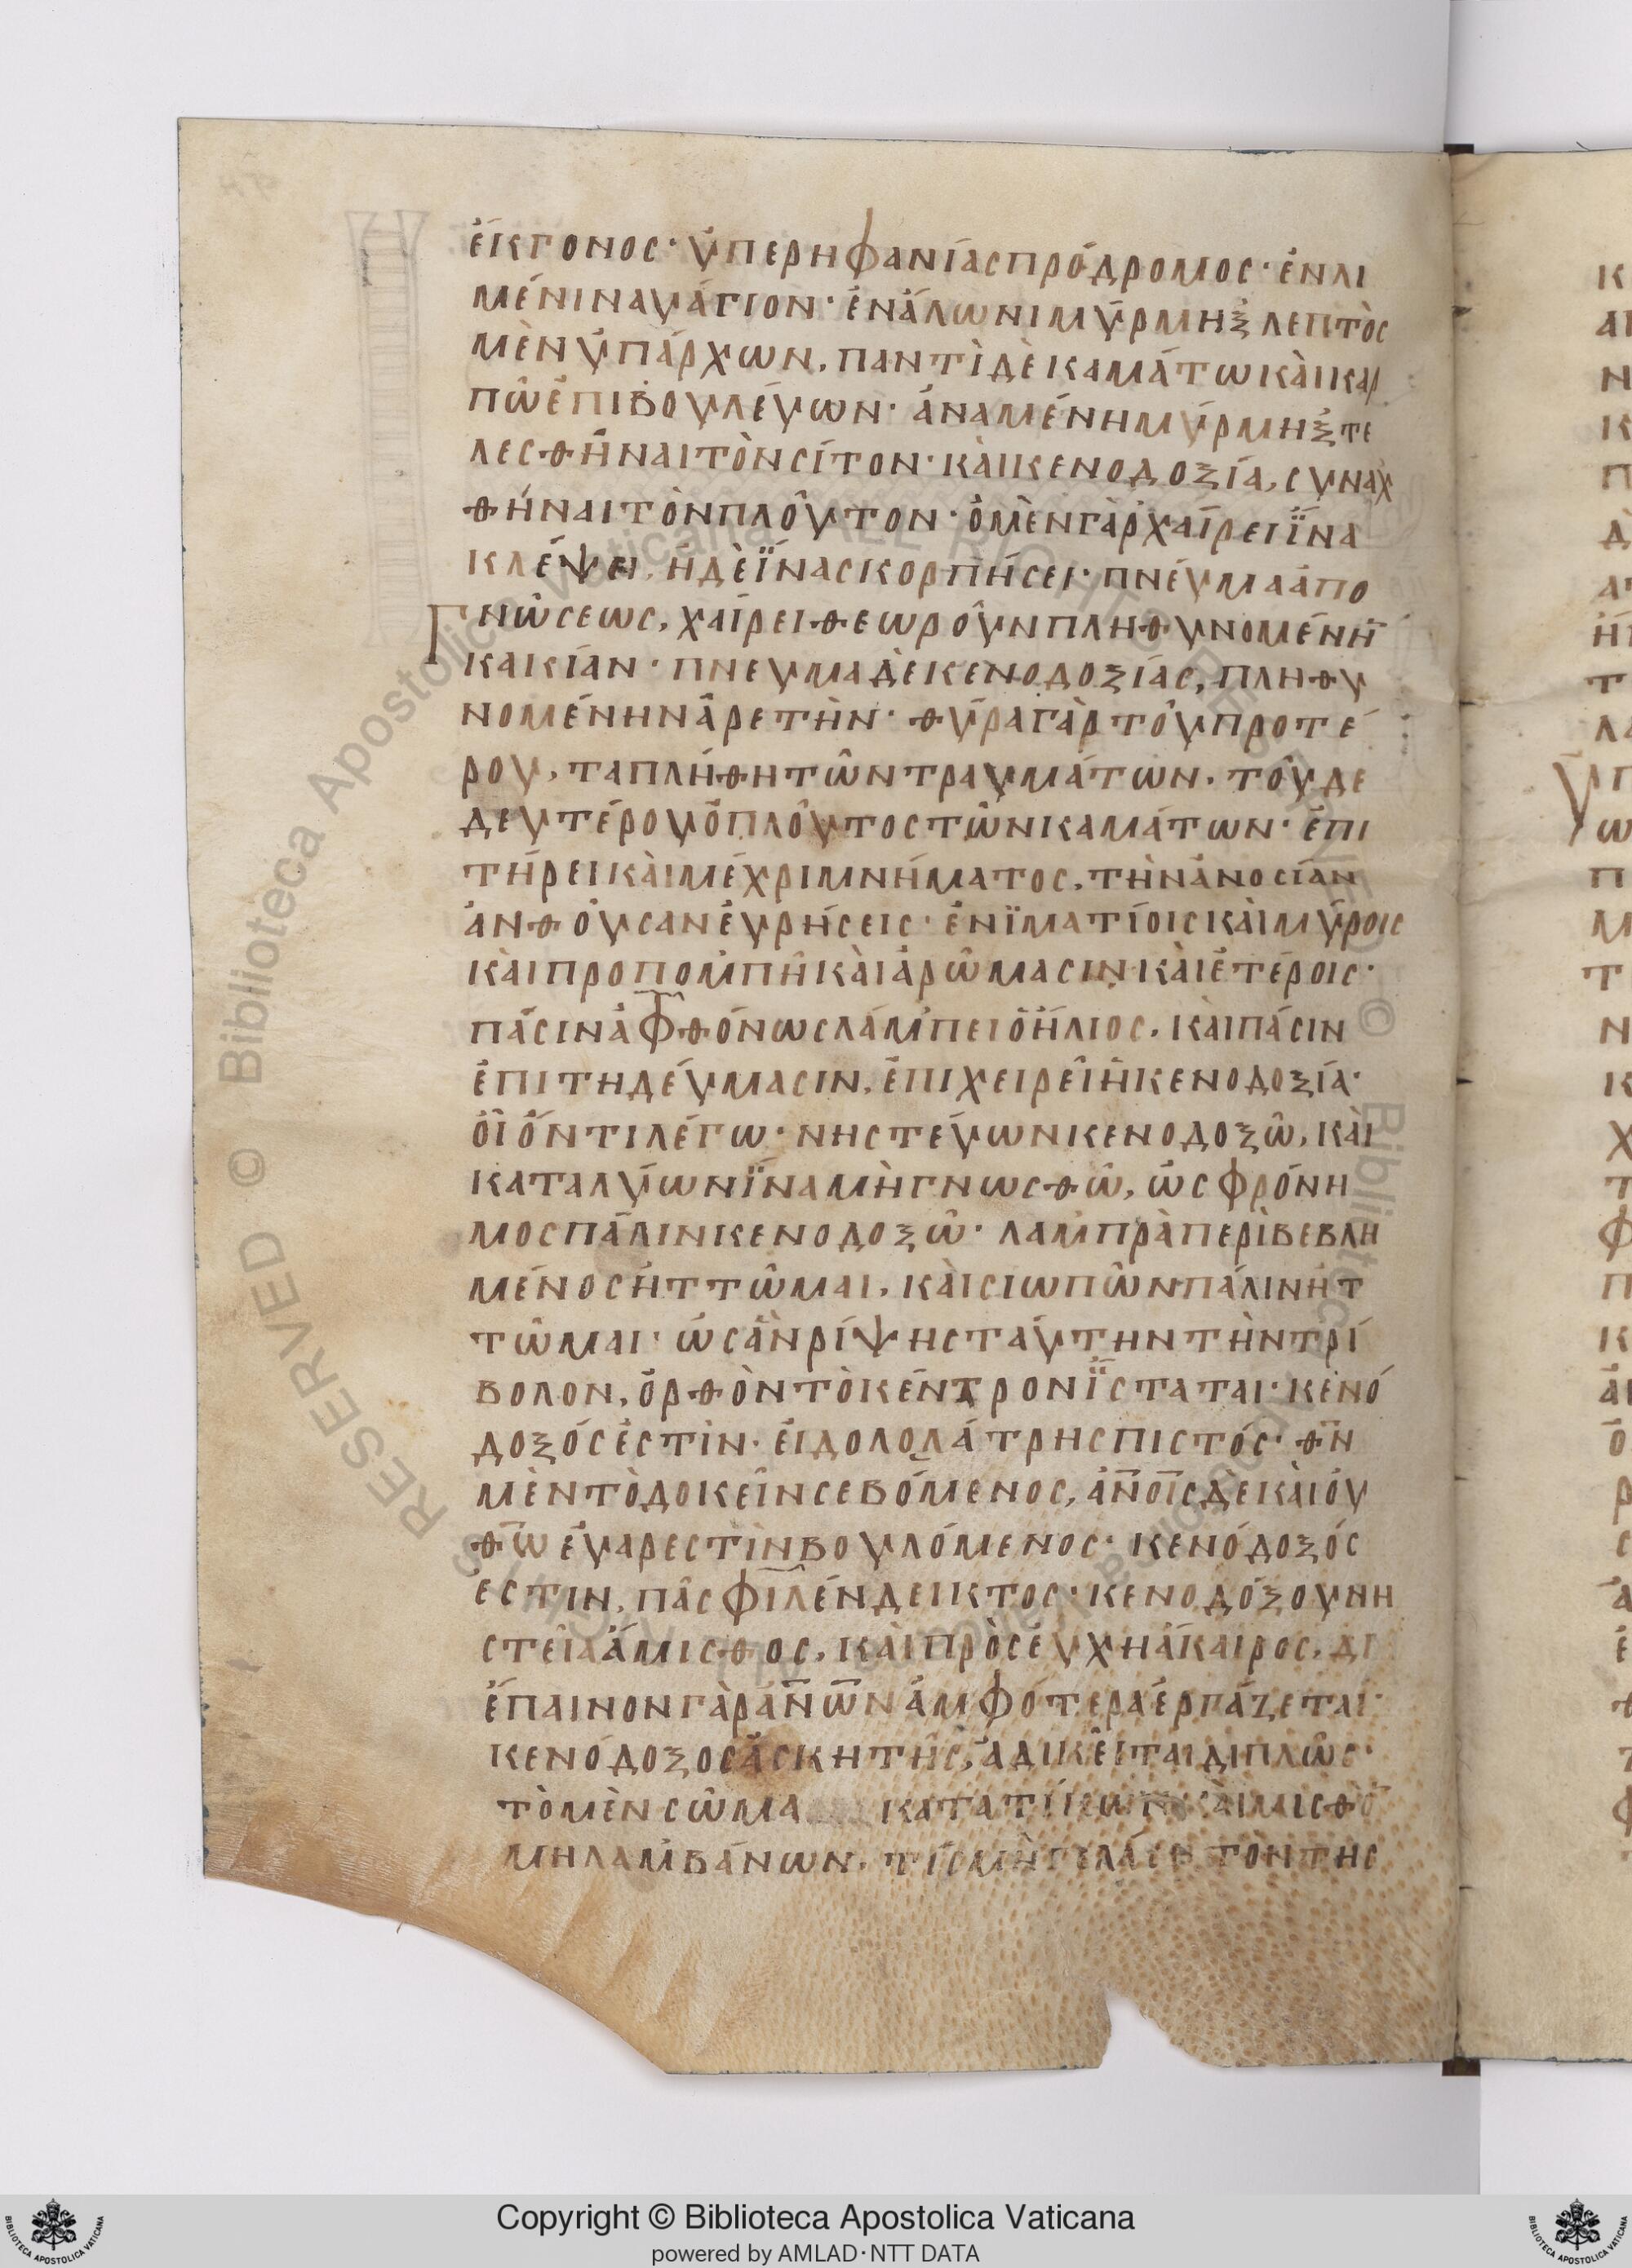 ἔκγονος· ὑπερηφανίας πρόδρομος· ἐν λι
μένι ναυάγιον· ἐν ἅλωνι μύρμηξ λεπτὸς
μὲν ὑπάρχων, παντὶ δὲ καμάτω καὶ καρ
πῶ ἐπιβουλεύων· ἀναμένη μύρμηξ τε
λεσθῆναι τὸν σίτον· καὶ κενοδοξία, συναχ
θῆναι τὸν πλοῦτον· ὁ μὲν γὰρ χαίρει ἵνα
κλέψει, ἡ δὲ ἵνα σκορπήσει· πνεύμα ἀπο
Γνώσεως, χαίρει θεωροῦν πληθυνομένη
κακίαν· πνευμα δὲ κενοδοξίας, πληθυ
νομένην ἀρετὴν· θύρα γὰρ τοῦ προτέ
ρου, τα πλήθη τῶν τραυμάτων. τοῦ δε
δευτέρου ὁ πλοῦτος τῶν καμάτων· ἐπι
τήρει καὶ μέχρι μνήματος, τὴν ἀνοσίαν
ἀνθοῦσαν εὑρήσεις· ἐν ϊματίοις καὶ μύροις
καὶ προπομπῆ καὶ ἀρώμασιν καὶ ἑτέροις·
πάσιν ἀφθόνως λάμπει ὁ ἥλιος, καὶ πάσιν
ἐπιτηδεύμασιν, ἐπιχειρεῖ ἡ κενοδοξία·
οἷόν τι λέγω· νηστεύων κενοδοξῶ, καὶ
καταλύων ἵνα μὴ γνωσθῶ, ὡς φρόνη
μος πάλιν κενοδοξῶ· λαμπρὰ περὶβεβλη
μένος ἡττῶμαι, καὶ σιωπῶν πάλιν ἡτ
τῶμαι· ὡς ἂν ρίψης ταύτην τὴν τρί
βολον, ὀρθὸν τὸ κέντρον ἵσταται· κενό
δοξός ἐστὶν· εἰδολολάτρης πιστός· θν
μὲν τὸ δοκεῖν σεβόμενος, ἀνοις δε καὶ οὐ
θω εὐαρεστὶν βουλόμενος· κενόδοξός
εστιν, πᾶς φιλένδεικτος· κενοδόξου νη
στεῖα ἄμισθος, καὶ πρὸσευχη ἄκαιρος, δι
ἔπαινον γὰρ ἀνων ἀμφότερα ἐργάζεται·
κενόδοξος ἀσκητῆς, ἀδικεῖται διπλῶς·
τὸ μὲν σῶμα κατατήκων καὶ μισθὸ
μη λαμβάνων. τίς μὴ γελάση τὸν της